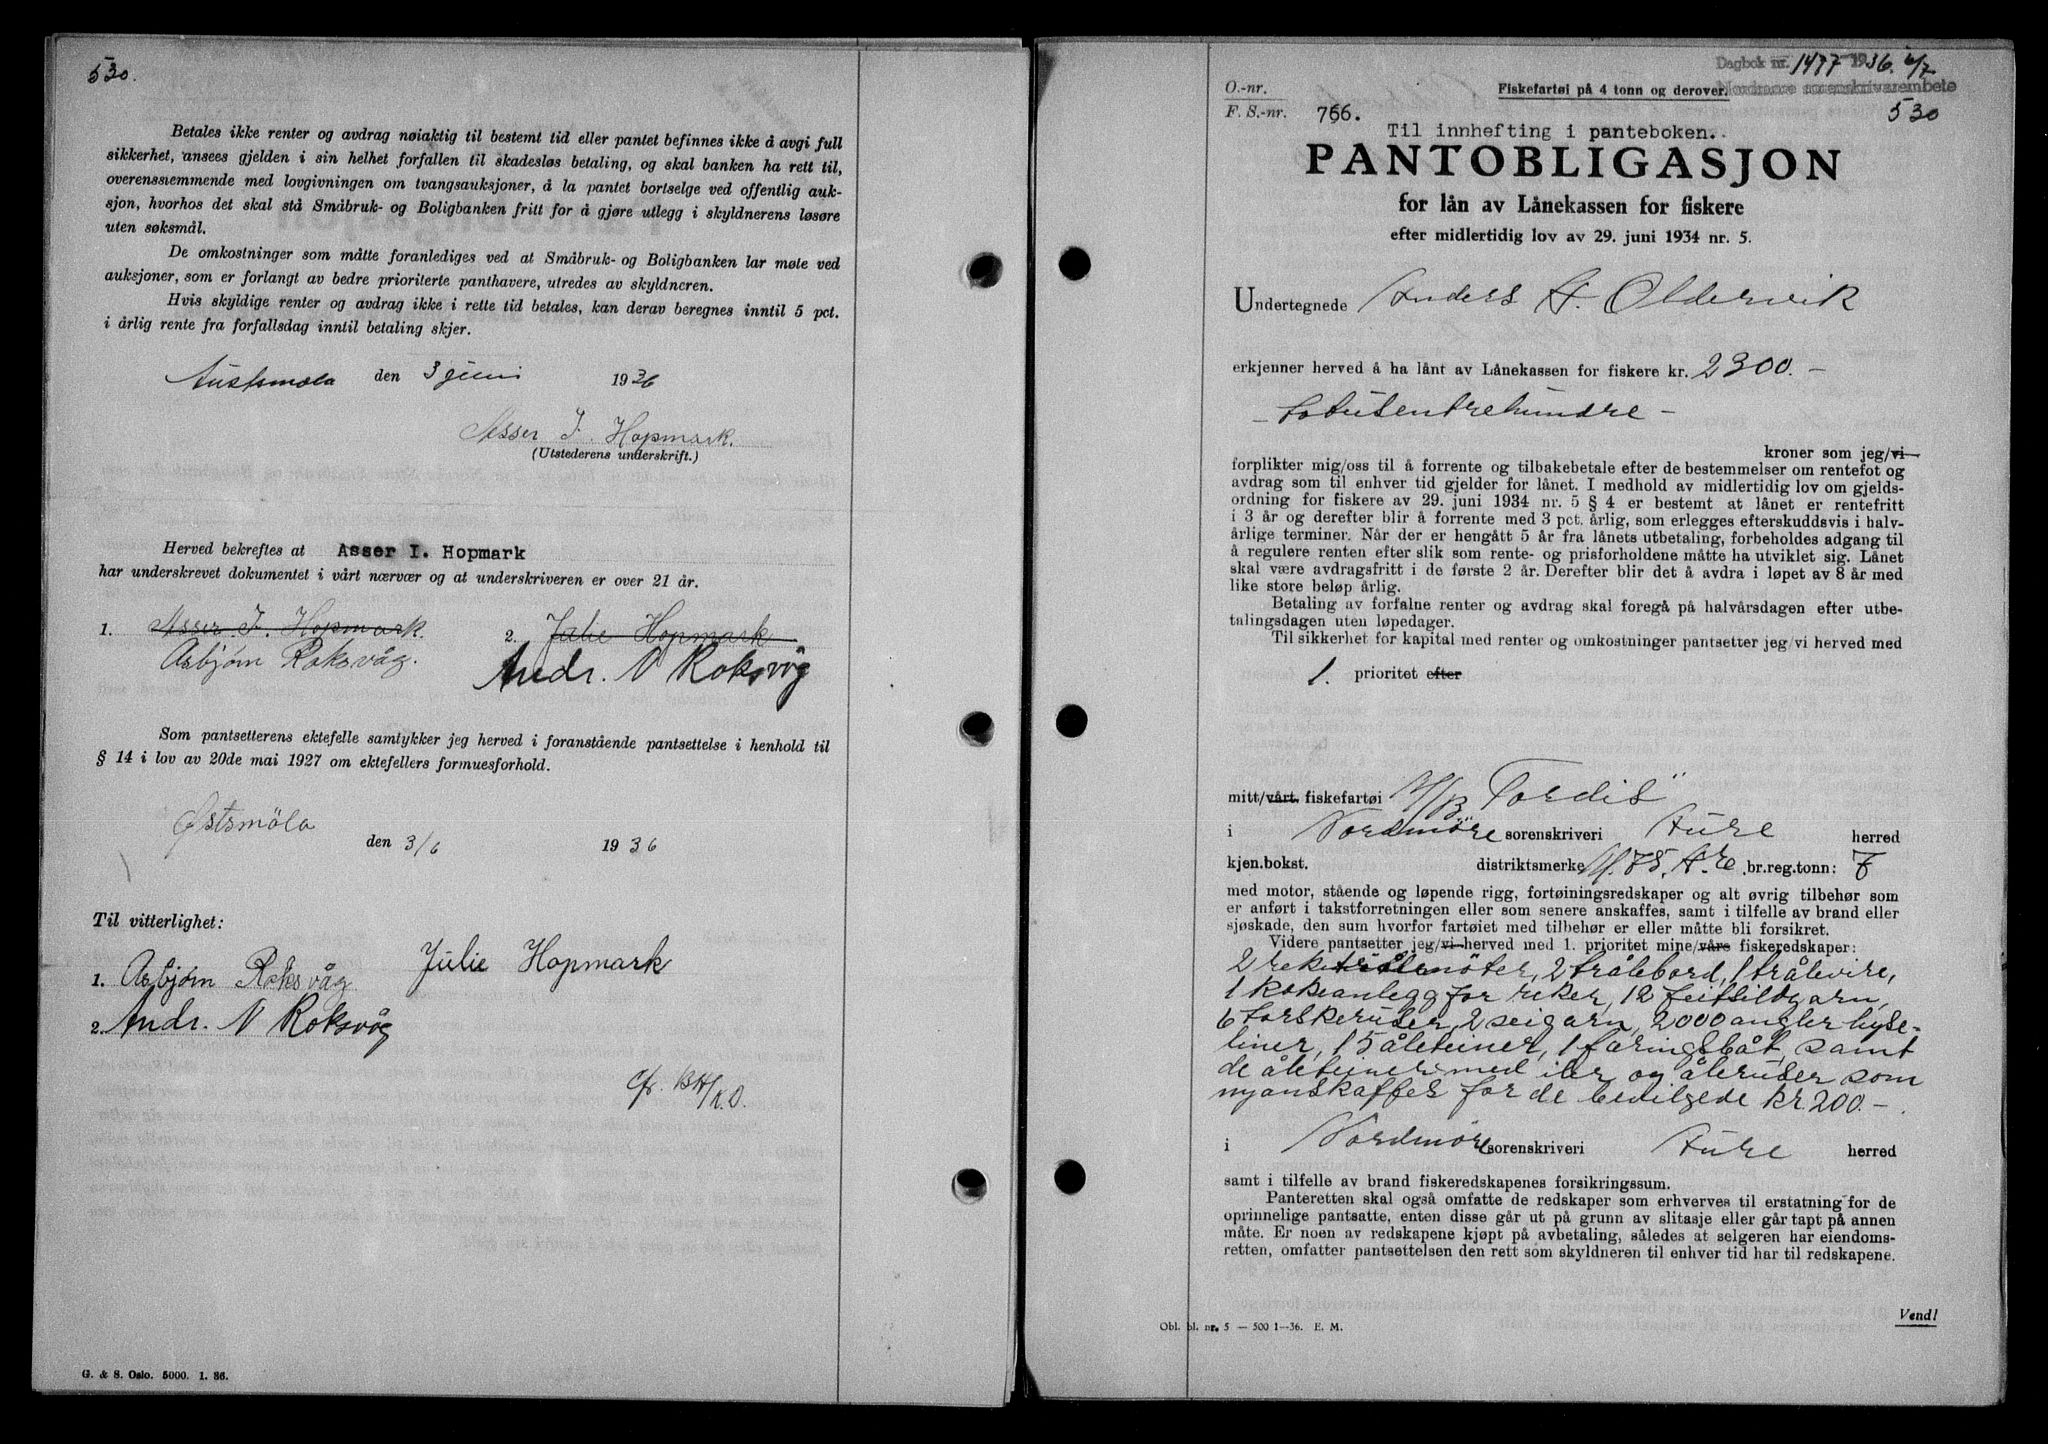 530.
Betales ikke renter og avdrag nøiaktig til bestemt tid eller pantet befinnes ikke å avgi full
sikkerhet, ansees gjelden i sin helhet forfallen til skadesløs betaling, og skal banken ha rett til,
overensstemmende med lovgivningen om tvangsauksjoner, å la pantet bortselge ved offentlig auk-
sjon, hvorhos det skal stå Småbruk- og Boligbanken fritt for å gjøre utlegg i skyldnerens løsøre
uten søksmål.
De omkostninger som måtte foranlediges ved at Småbruk- og Boligbanken lar møte ved
auksjoner, som er forlangt av bedre prioriterte panthavere, utredes av skyldneren.
Hvis skyldige renter og avdrag ikke i rette tid betales, kan derav beregnes inntil 5 pct.
i årlig rente fra forfallsdag inntil betaling skjer.
Austsmøla den 3 juni 1936
Asser I. Hopmark.
(Utstederens underskrift.)
Herved bekreftes at Asser I. Hopmark
har underskrevet dokumentet i vårt nærvær og at underskriveren er over 21 år.
1. Asser I. Hopmark. 2. Julie Hopmark
Asbjørn Roksvåg. Andr. N Roksvåg
Som pantsetterens ektefelle samtykker jeg herved i foranstående pantsettelse i henhold til
§ 14 i lov av 20de mai 1927 om ektefellers formuesforhold.
Østsmöla den 3/6 1936
Til vitterlighet:
Julie Hopmark
1. Asbjørn Roksvåg
2. Andr. N Roksvåg
Cfr. BH/K.O.
G. & S. Oslo. 5000. 1. 36.
Dagbok nr. 1477 1936 6/7
Nordmøre sorenskrivarembete
530
O.-nr.
F. S.-nr. 766.
Fiskefartøi på 4 tonn og derover.
Til innhefting i panteboken.
PANTOBLIGASJON
for lån av Lånekassen for fiskere
efter midlertidig lov av 29. juni 1934 nr. 5.
Undertegnede Anders A. Oldervik
erkjenner herved å ha lånt av Lånekassen for fiskere kr. 2300.-
- totusentrehundre -
kroner som jeg/vi
forplikter mig/oss til å forrente og tilbakebetale efter de bestemmelser om rentefot og
avdrag som til enhver tid gjelder for lånet. I medhold av midlertidig lov om gjelds-
ordning for fiskere av 29. juni 1934 nr. 5 § 4 er bestemt at lånet er rentefritt
i 3 år og derefter blir å forrente med 3 pct. årlig, som erlegges efterskuddsvis i halv-
årlige terminer. Når der er hengått 5 år fra lånets utbetaling, forbeholdes adgang til
å regulere renten efter slik som rente- og prisforholdene måtte ha utviklet sig. Lånet
skal være avdragsfritt i de første 2 år. Derefter blir det å avdra i løpet av 8 år med
like store beløp årlig.
Betaling av forfalne renter og avdrag skal foregå på halvårsdagen efter utbe-
talingsdagen uten løpedager.
Til sikkerhet for kapital med renter og omkostninger pantsetter jeg/vi herved med
1. prioritet efter
mitt/vårt fiskefartøi M/B "Tordis"
i Nordmöre sorenskriveri Aure herred
kjen.bokst. distriktsmerke M.75.A.e. br.reg.tonn: 7
med motor, stående og løpende rigg, fortøiningsredskaper og alt øvrig tilbehør som
er anført i takstforretningen eller som senere anskaffes, samt i tilfelle av brand eller
sjøskade, den sum hvorfor fartøiet med tilbehør er eller måtte bli forsikret.
Videre pantsetter jeg/vi herved med 1. prioritet mine/våre fiskeredskaper:
2 reketrålenöter, 2 trålebord, 1 trålevire,
1 kokeanlegg for reker, 12 feitsildgarn,
6 torskeruser, 2 seigarn, 2000 angler hyse-
liner, 15 åleteiner, 1 færingsbåt, samt
de åleteiner med iler og åleruser som
nyanskaffes for de bevilgede kr 200.-
i Nordmöre sorenskriveri Aure herred
samt i tilfelle av brand fiskeredskapenes forsikringssum.
Panteretten skal også omfatte de redskaper som erhverves til erstatning for de
oprinnelige pantsatte, enten disse går ut på grunn av slitasje eller går tapt på annen
måte. Er noen av redskapene kjøpt på avbetaling, således at selgeren har eiendoms-
retten, omfatter pantsettelsen den rett som skyldneren til enhver tid har til redskapene.
Vend!
Obl. bl. nr. 5 — 500 1—36. E. M.